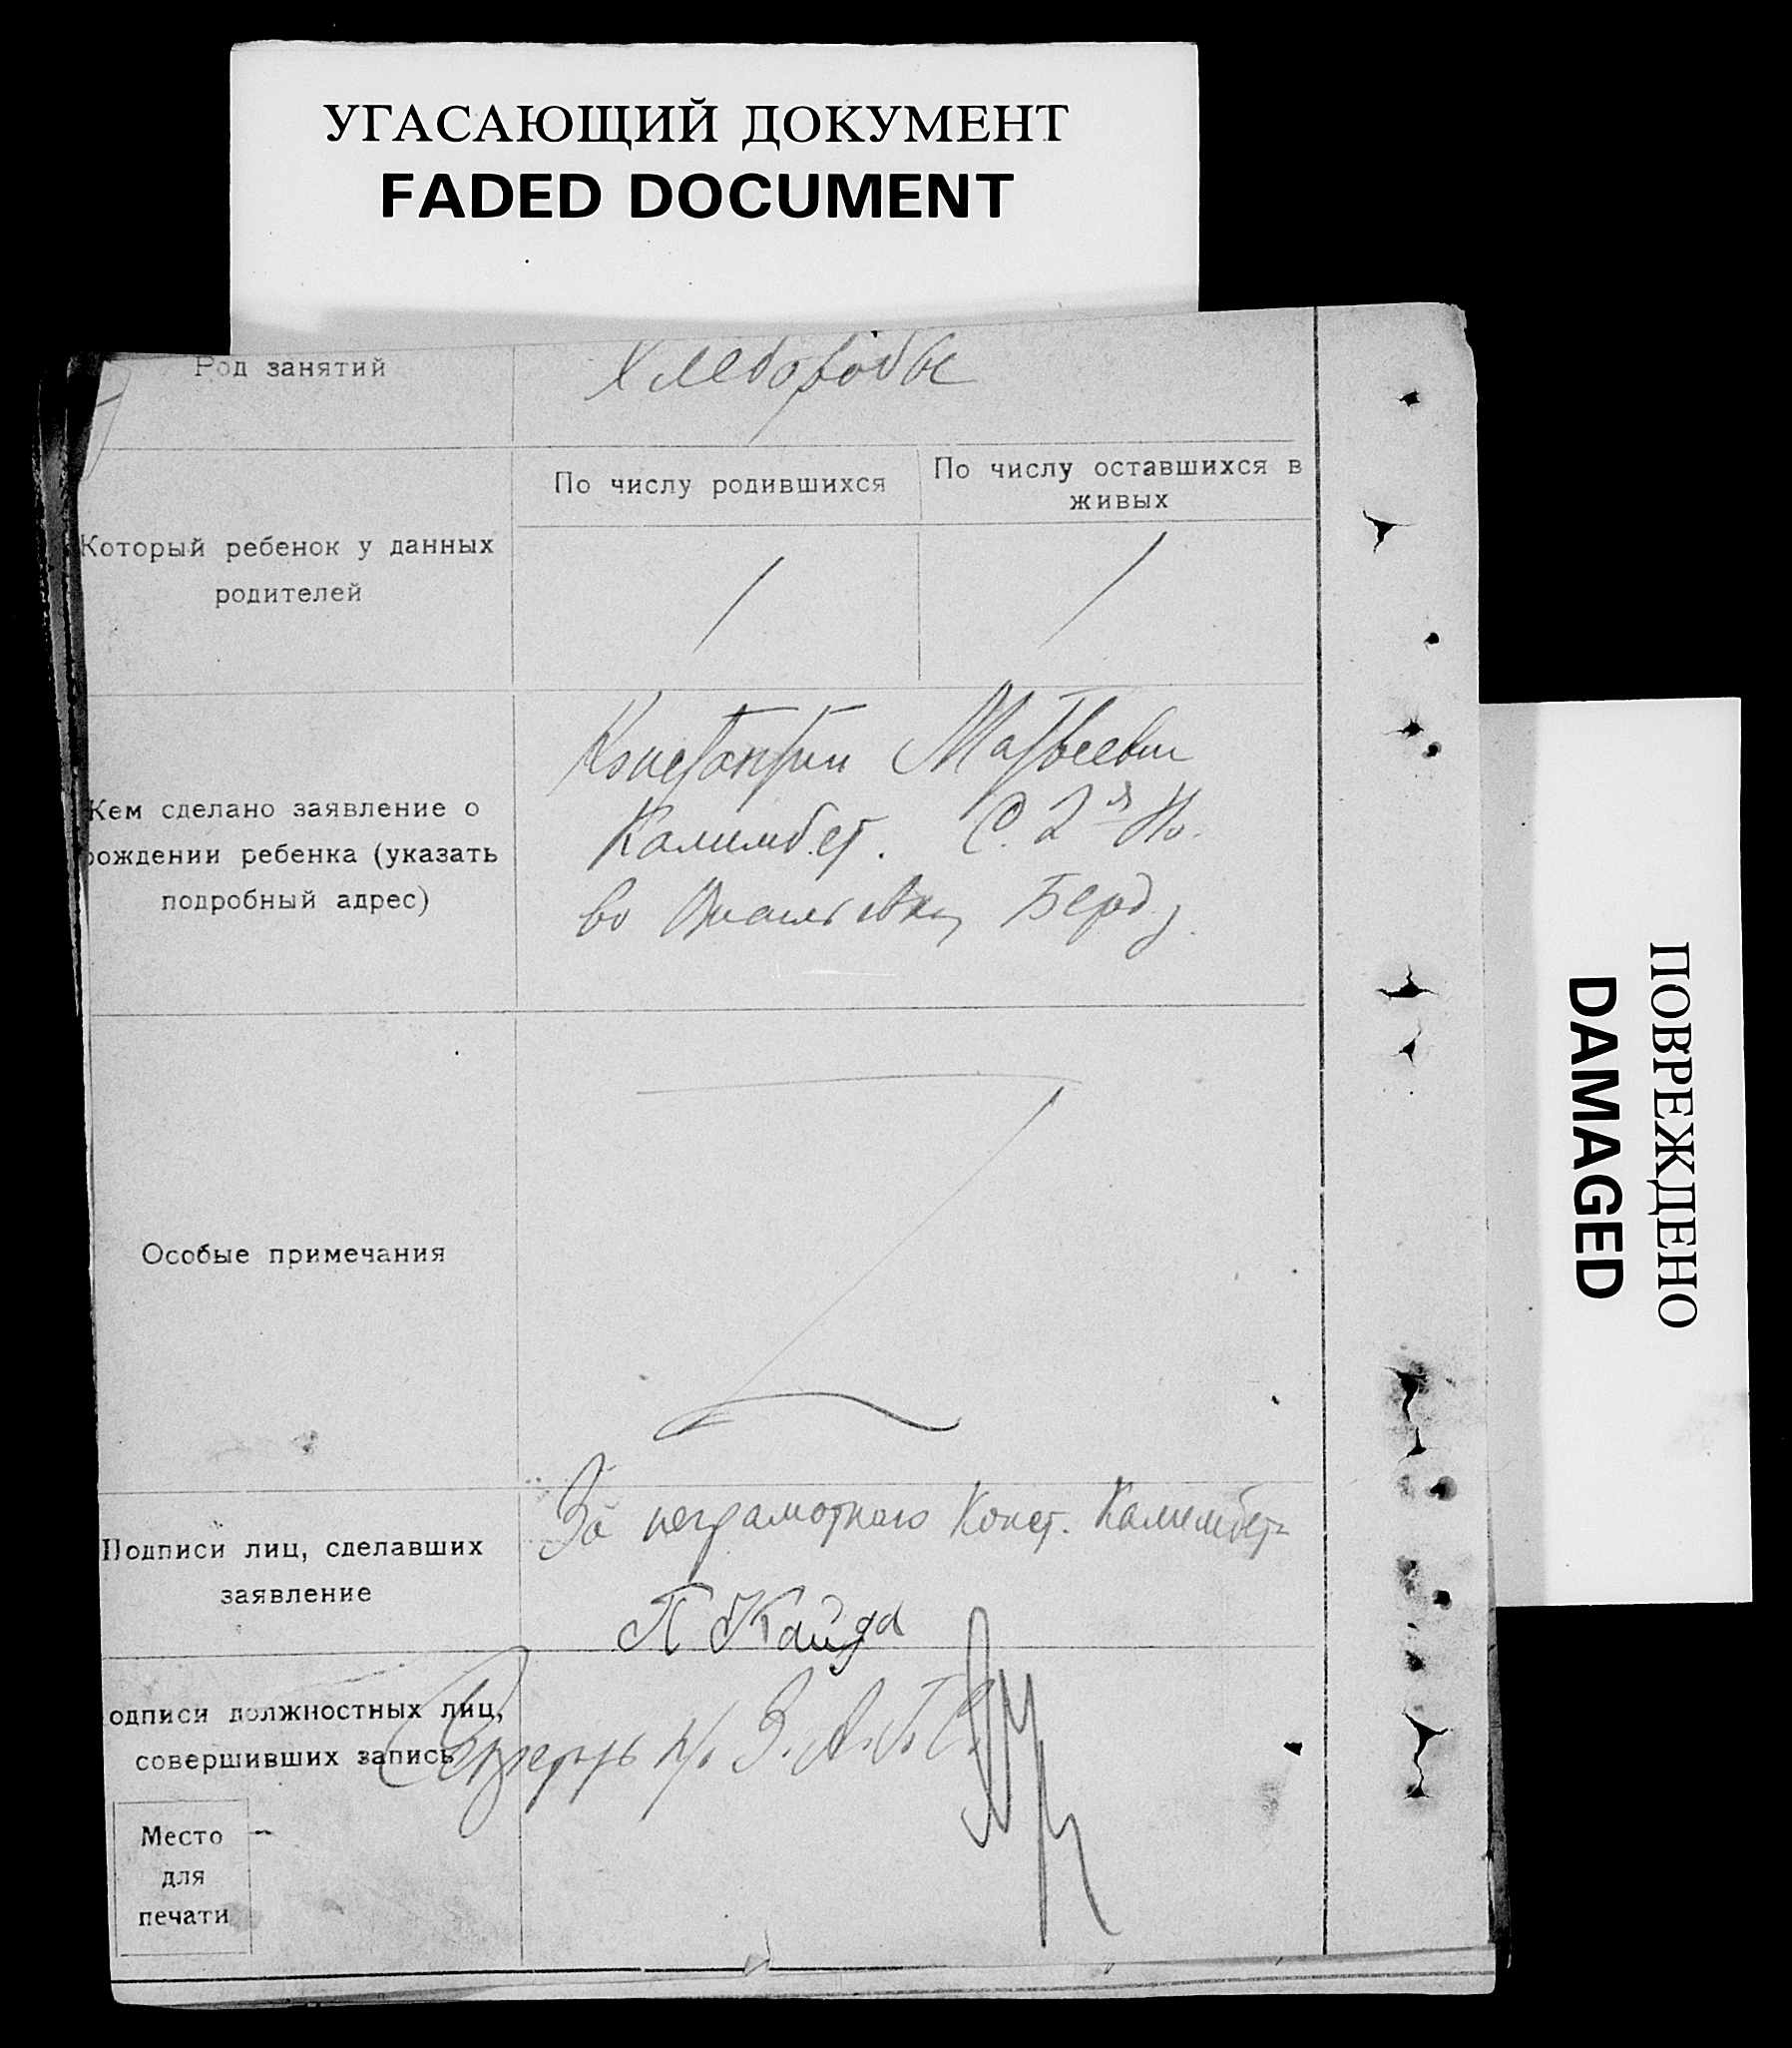 УГАСАЮЩИЙ ДОКУМЕНТ
FADED DOCUMENT
Род занятий
Хлеборобы
Который ребенок у данных
родителей
По числу родившихся
По числу оставшихся в
живых
1
1
Кем сделано заявление о
рождении ребенка (указать
подробный адрес)
Константин Матвеевич
Калимбет. С. 2я Но-
во Берд.
Особые примечания
Подписи лиц, сделавших
заявление
За неграмотного Конст. Калимбет
П Кайда
одписи должностных лиц,
совершивших запись
Секретарь З.А.Г.С.
Место
для
печати
ПОВРЕЖДЕНО
DAMAGED